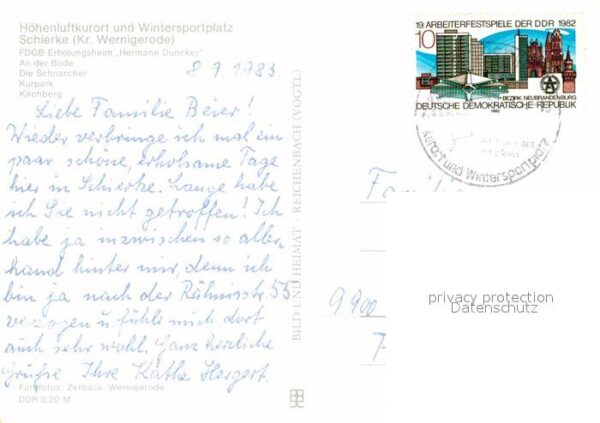 Höhenluftkurort und Wintersportplatz
Schierke (Kr. Wernigerode)
FDGB-Erholungsheim „Hermann Duncker"
An der Bode
Die Schnarcher
Kurpark
Kirchberg
8.9.1983.
Liebe Familie Beier!
Wieder verbringe ich mal ein
paar schöne, erholsame Tage
hier in Schierke. Lange habe
ich Sie nicht getroffen! Ich
habe ja inzwischen so aller-
hand hinter mir, denn ich
bin ja nach der Rähnisstr. 55
verzogen u. fühle mich dort
auch sehr wohl. Ganz herzliche
Grüße Ihre Käthe Hergert.
Farbfotos: Zerback, Wernigerode
DDR 0,20 M
BILD UND HEIMAT · REICHENBACH (VOGTL)
19. ARBEITERFESTSPIELE DER DDR 1982
10
BEZIRK NEUBRANDENBURG
DEUTSCHE DEMOKRATISCHE REPUBLIK
1982
Kurort und Wintersportplatz
Familie
9900
privacy protection
Datenschutz